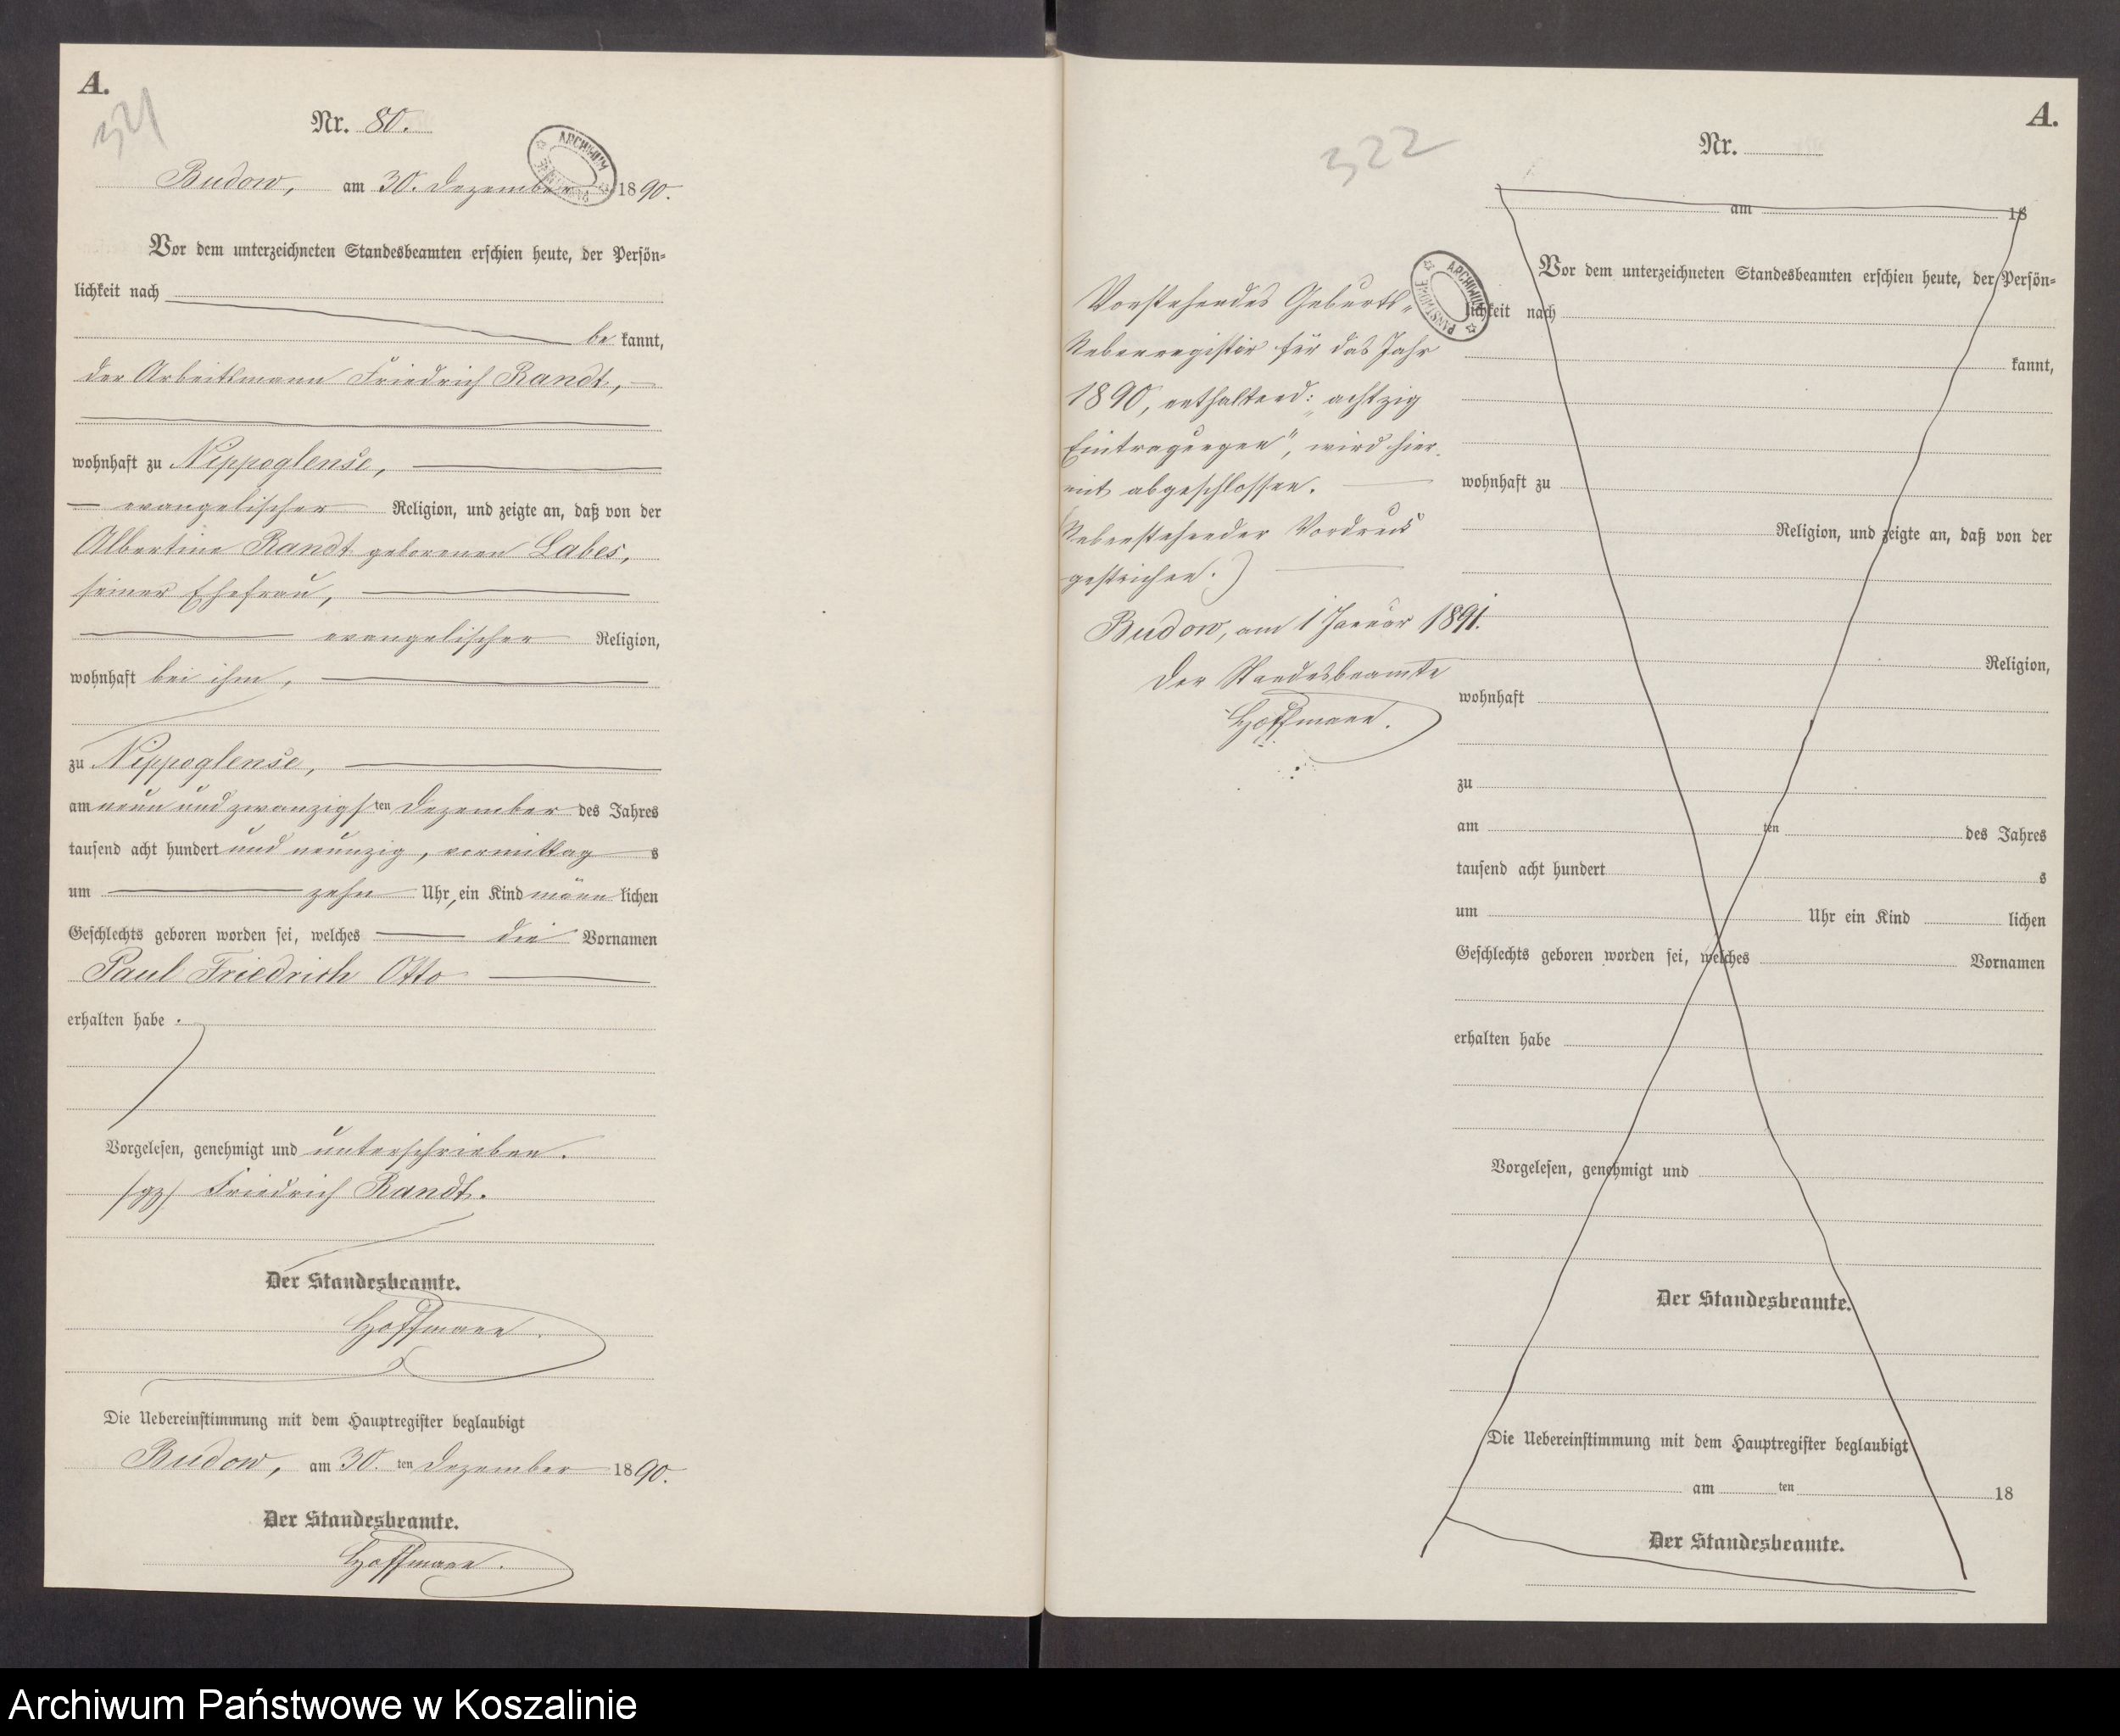 A.
321
Nr. 80.
Budow, am 30. Dezember 1890.
ARCHIWUM PAŃSTWOWE
Vor dem unterzeichneten Standesbeamten erschien heute, der Persön-
lichkeit nach
be kannt,
der Arbeitsmann Friedrich Randt,
wohnhaft zu Nippoglense,
evangelischer Religion, und zeigte an, daß von der
Albertine Randt geborenen Labes,
seiner Ehefrau,
evangelischer Religion,
wohnhaft bei ihm,
zu Nippoglense,
am neun und zwanzigsten Dezember des Jahres
tausend acht hundert und neunzig, vormittag s
um zehn Uhr, ein Kind männ lichen
Geschlechts geboren worden sei, welches die Vornamen
Paul Friedrich Otto
erhalten habe.
Vorgelesen, genehmigt und unterschrieben.
/gz/ Friedrich Randt.
Der Standesbeamte.
Hoffmann.
Die Uebereinstimmung mit dem Hauptregister beglaubigt
Budow, am 30. ten Dezember 1890.
Der Standesbeamte.
Hoffmann.
322
Vorstehendes Geburts-
Nebenregister für das Jahr
1890, enthaltend: „achtzig
Eintragungen", wird hier-
mit abgeschlossen.
(Nebenstehender Vordruck
gestrichen.)
Budow, am 1 Januar 1891.
Der Standesbeamte
Hoffmann.
ARCHIWUM PAŃSTWOWE
A.
Nr.
am 18
Vor dem unterzeichneten Standesbeamten erschien heute, der Persön-
lichkeit nach
kannt,
wohnhaft zu
Religion, und zeigte an, daß von der
Religion,
wohnhaft
zu
am ten des Jahres
tausend acht hundert s
um Uhr ein Kind lichen
Geschlechts geboren worden sei, welches Vornamen
erhalten habe
Vorgelesen, genehmigt und
Der Standesbeamte.
Die Uebereinstimmung mit dem Hauptregister beglaubigt
am ten 18
Der Standesbeamte.
Archiwum Państwowe w Koszalinie